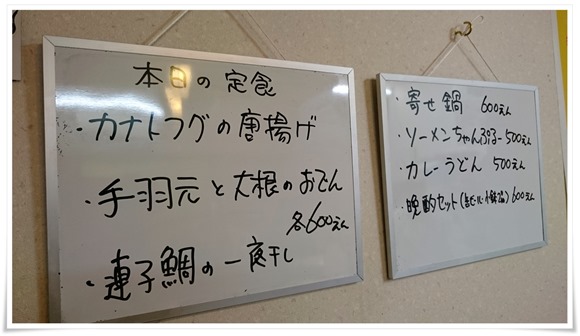 本日の定食
・カナトフグの唐揚げ
・手羽元と大根のおでん
各600えん
・連子鯛の一夜干し
・寄せ鍋 600えん
・ソーメンちゃんぷるー500えん
・カレーうどん 500えん
・晩酌セット(生ビール・小鉢2品)600えん